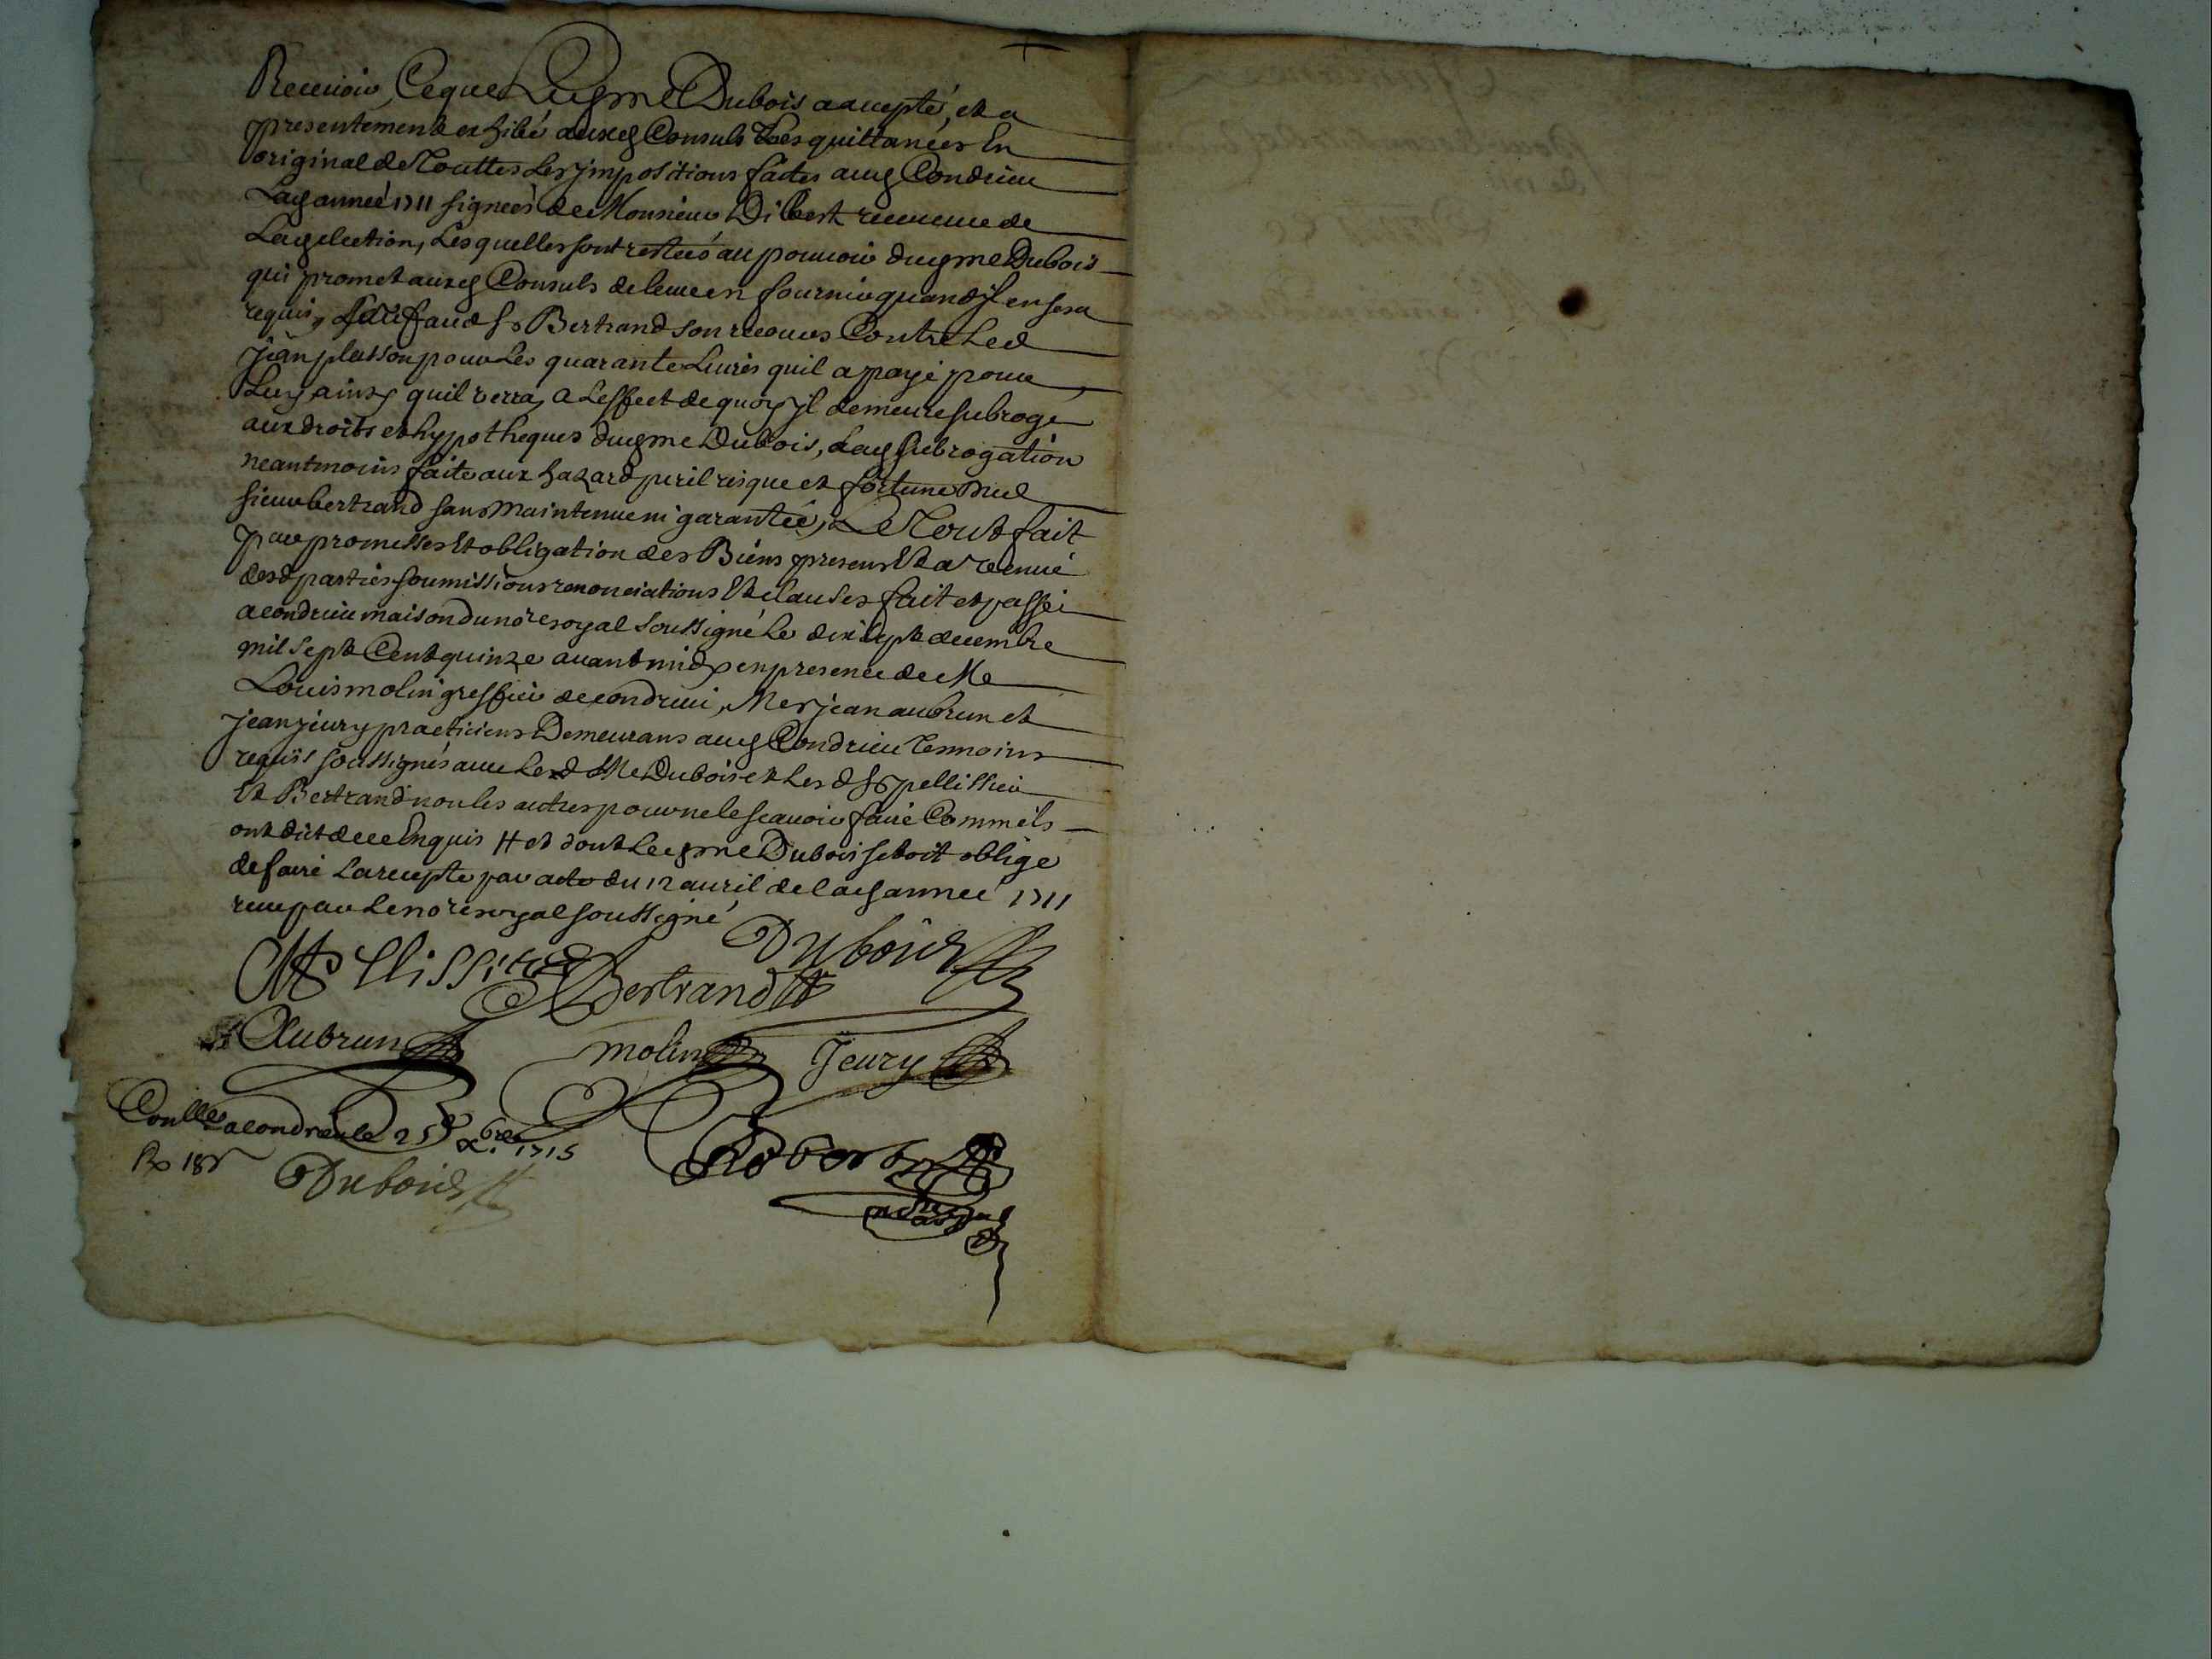 Receuoir, Ceque Ledit me Dubois a accepté, et a
presentement exhibé ausd Consuls Les quittances En
original de Touttes Les jmpositions faites aud Condrieu
Lad année 1711 signées de Monsieur Dibert receueur de
Lad election, Lesquelles sont restées au pouuoir dud me Dubois
qui promet ausd Consuls de leur en fournir quand jl en sera
requis, Sauf aud sr Bertrand son recours Contre Led
jean plasson pour Les quarante Liures quil a payé pour
Luy ainsy quil verra, a Leffect de quoy jl demeure subrogé
aux droits et hypotheques dud me Dubois, Lad subrogation
neantmoins faite aux hazard peril risque et fortune dud
sieur bertrand sans Maintenue ni garantée, Le Tout fait
par promesses Et obligation des Biens presens Et a venir
desd parties soumissions renonciations Et clauses fait et passé
a condrieu maison du nore royal soussigné Le dix sept decembre
mil sept Cent quinze auant midy en presence de Me
Louis molin greffier de condrieu, Mes jean aubrun et
jean jeury practiciens Demeurans aud Condrieu Tesmoins
requis soussignés auec Led Me Dubois et Les d srs pellissier
Et Bertrand non les autres pour ne le scauoir faire Comme ils
ont dit de ce Enquis # et dont Led me Dubois setoit obligé
de faire La recepte par acte du 12 auril de lad année 1711
receu par Le nore royal soussigné
Dubois
Pellissier Bertrand
Aubrun molin Jeury
Conllé a condrieu le 25e xbre 1715
Rx 18s Dubois
Robert